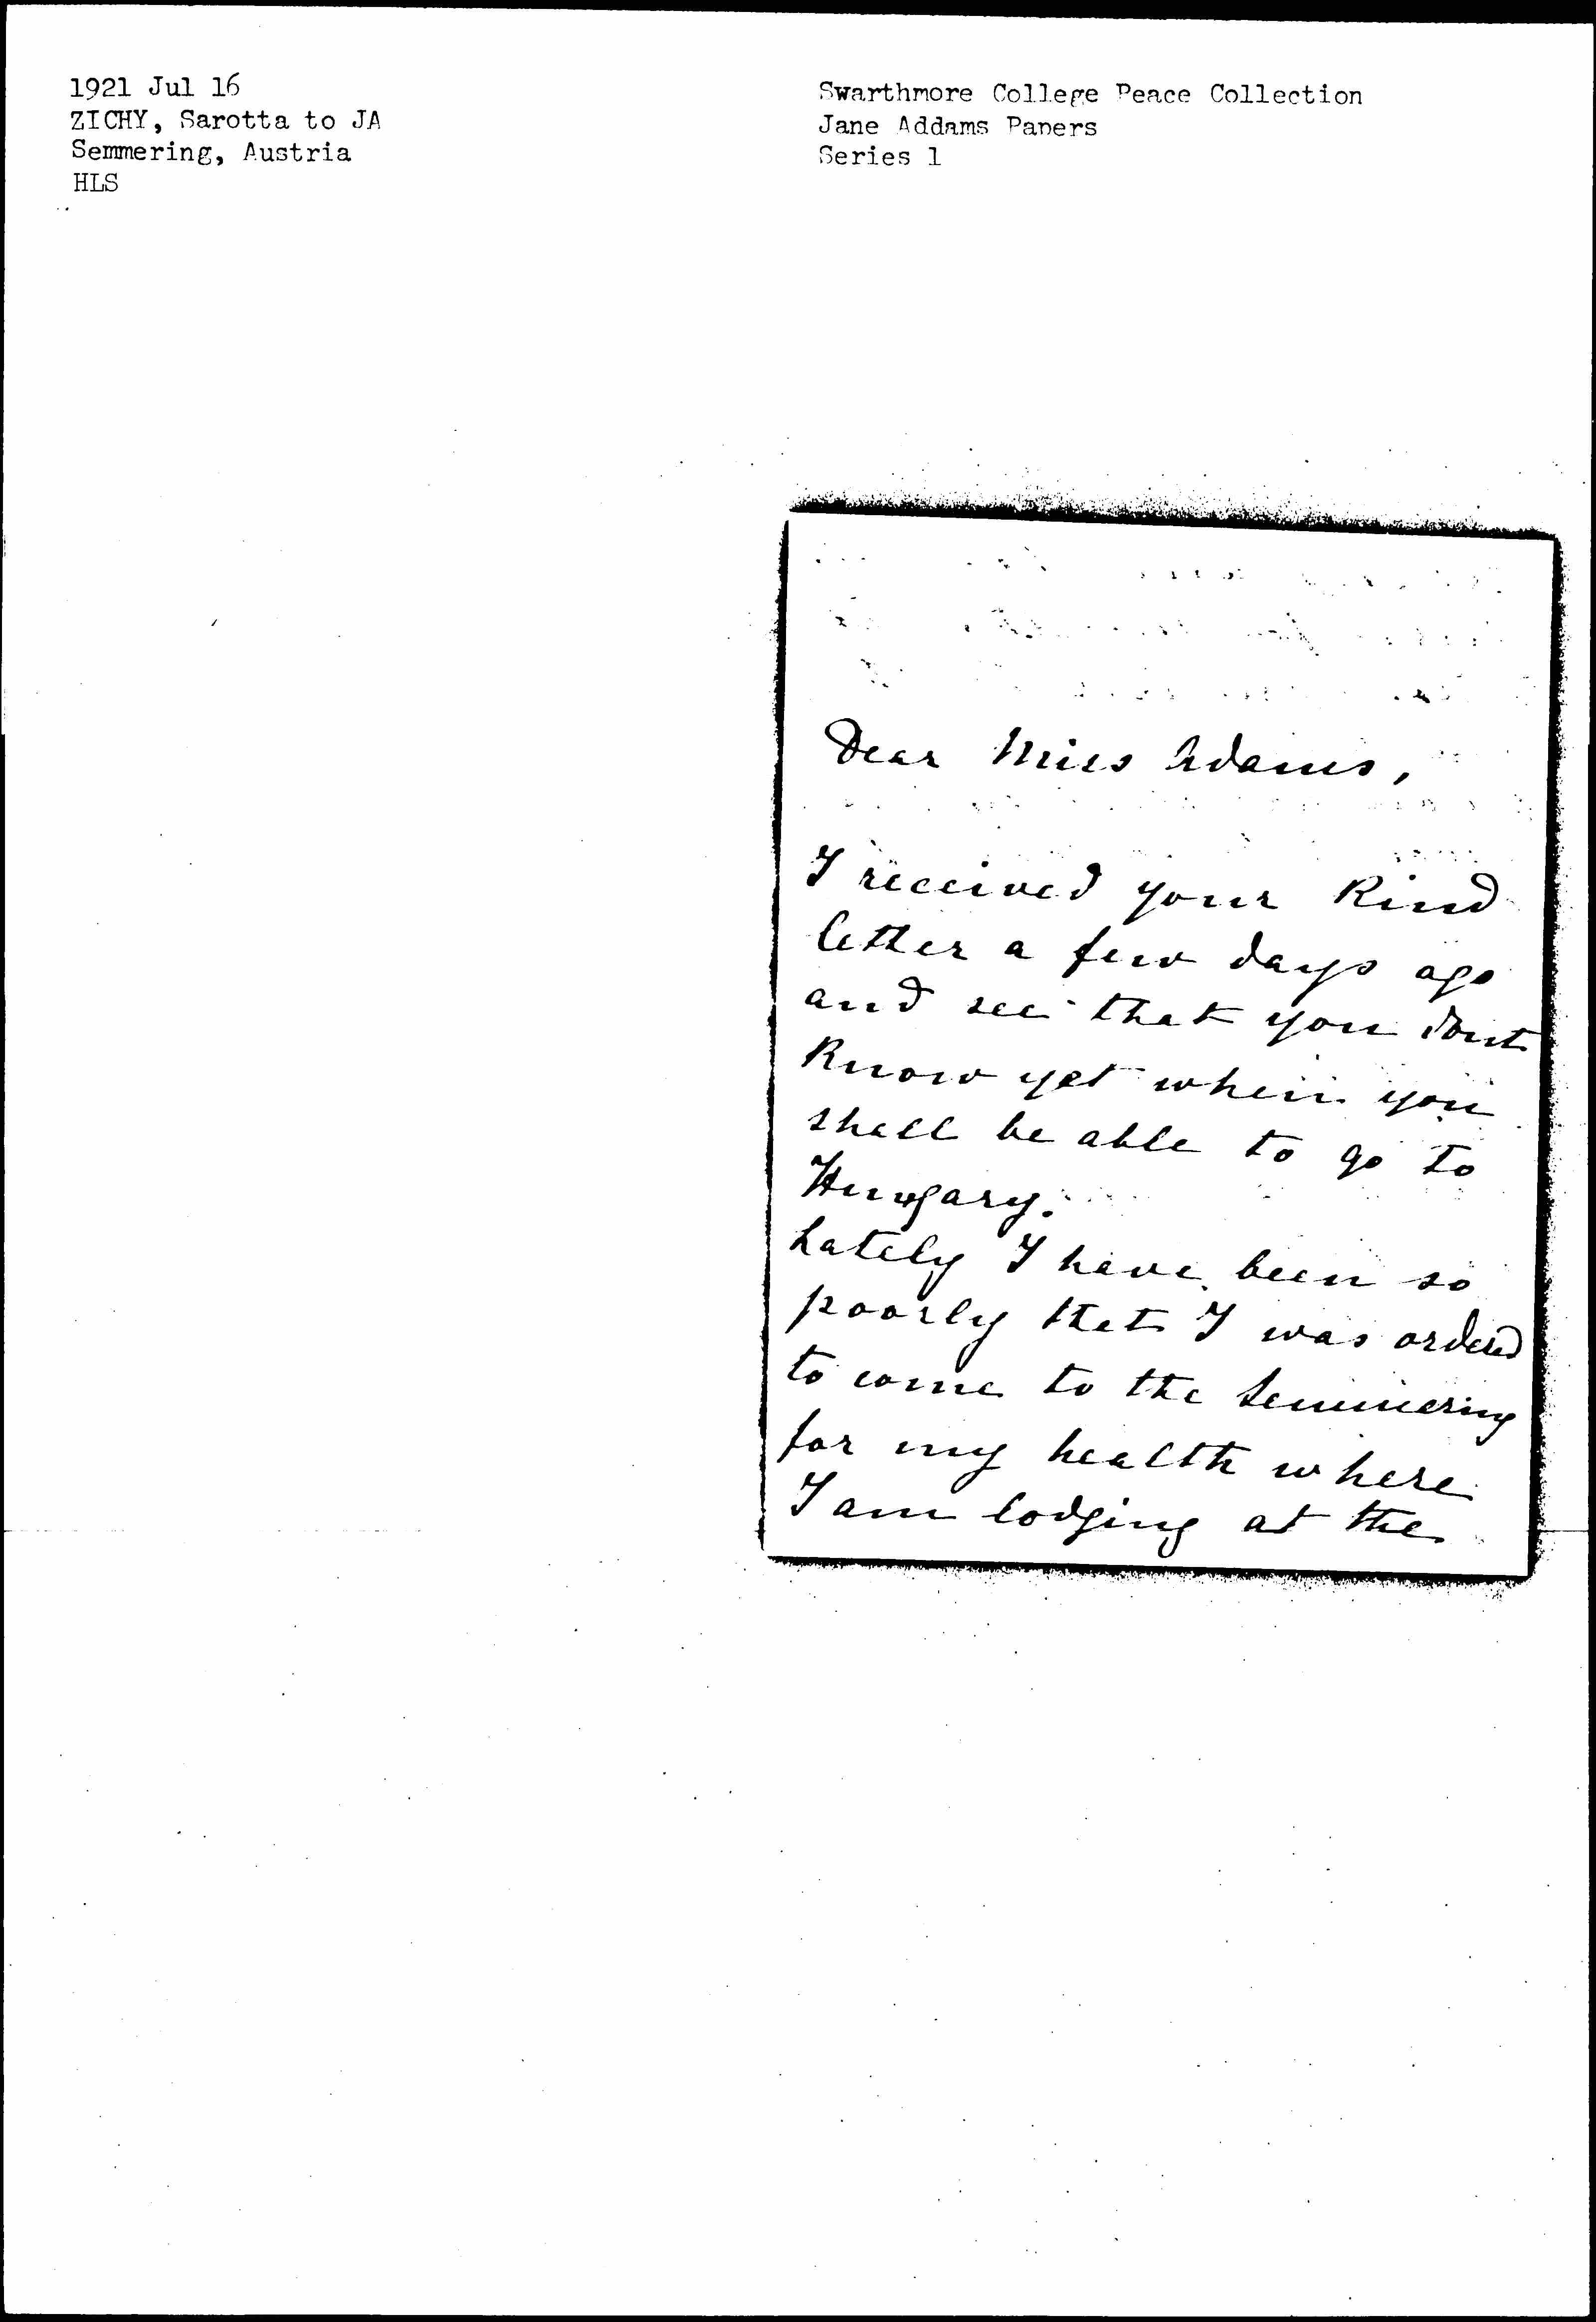 1921 Jul 16
ZICHY, Sarotta to JA
Semmering, Austria
HLS
Swarthmore College Peace Collection
Jane Addams Papers
Series 1
Dear Miss Adams,
I received your kind
letter a few days ago
and see that you dont
know yet when you
shall be able to go to
Hungary.
Lately I have been so
poorly that I was ordered
to come to the Semmering
for my health where
I am lodging at the